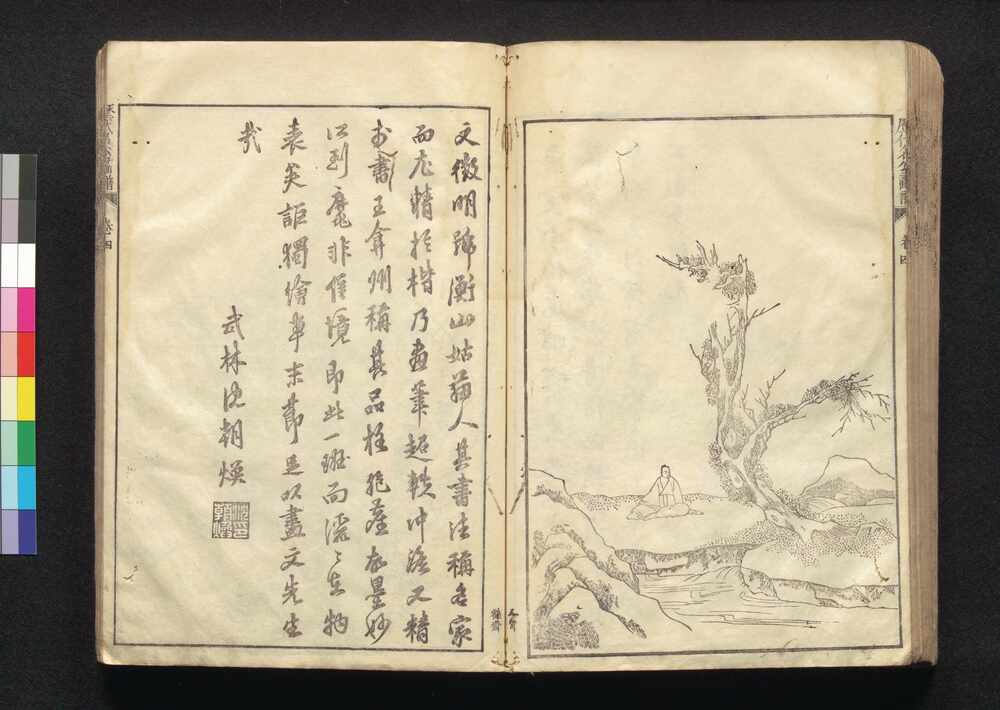 歷代名公畫譜
卷四
文徵明號衡山姑蘓人其書法稱名家
而尤精於楷乃畫筆超軼沖澹又精
於書王弇州稱其品墨妙
到處非俗境即此一斑而物
表矣詎獨繪事末節足以盡文先生
哉
武林沈朝煥
卷四